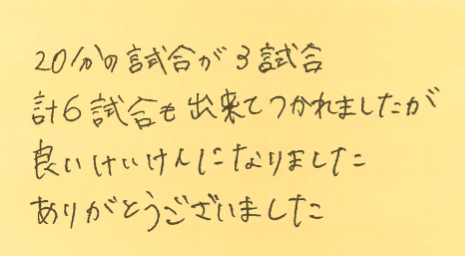 20分の試合が3試合
計6試合も出来てつかれましたが
良いけいけんになりました
ありがとうございました